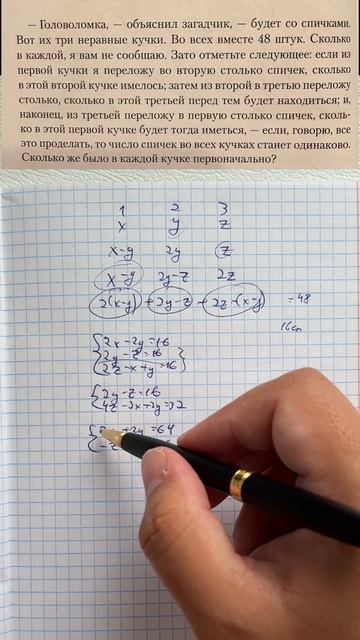 — Головоломка, — объяснил загадчик, — будет со спичками.
Вот их три неравные кучки. Во всех вместе 48 штук. Сколько
в каждой, я вам не сообщаю. Зато отметьте следующее: если из
первой кучки я переложу во вторую столько спичек, сколько
в этой второй кучке имелось; затем из второй в третью переложу
столько, сколько в этой третьей перед тем будет находиться; и,
наконец, из третьей переложу в первую столько спичек, сколь-
ко в этой первой кучке будет тогда иметься, — если, говорю, все
это проделать, то число спичек во всех кучках станет одинаково.
Сколько же было в каждой кучке первоначально?
1 2 3
x y z
x-y 2y z
x-y 2y-z 2z
2(x-y) + 2y-z + 2z-(x-y) =48
16сп
2x-2y=16
2y-z=16
2z-x+y=16
2y-z=16
4z-2x+2y=32
+2y=64